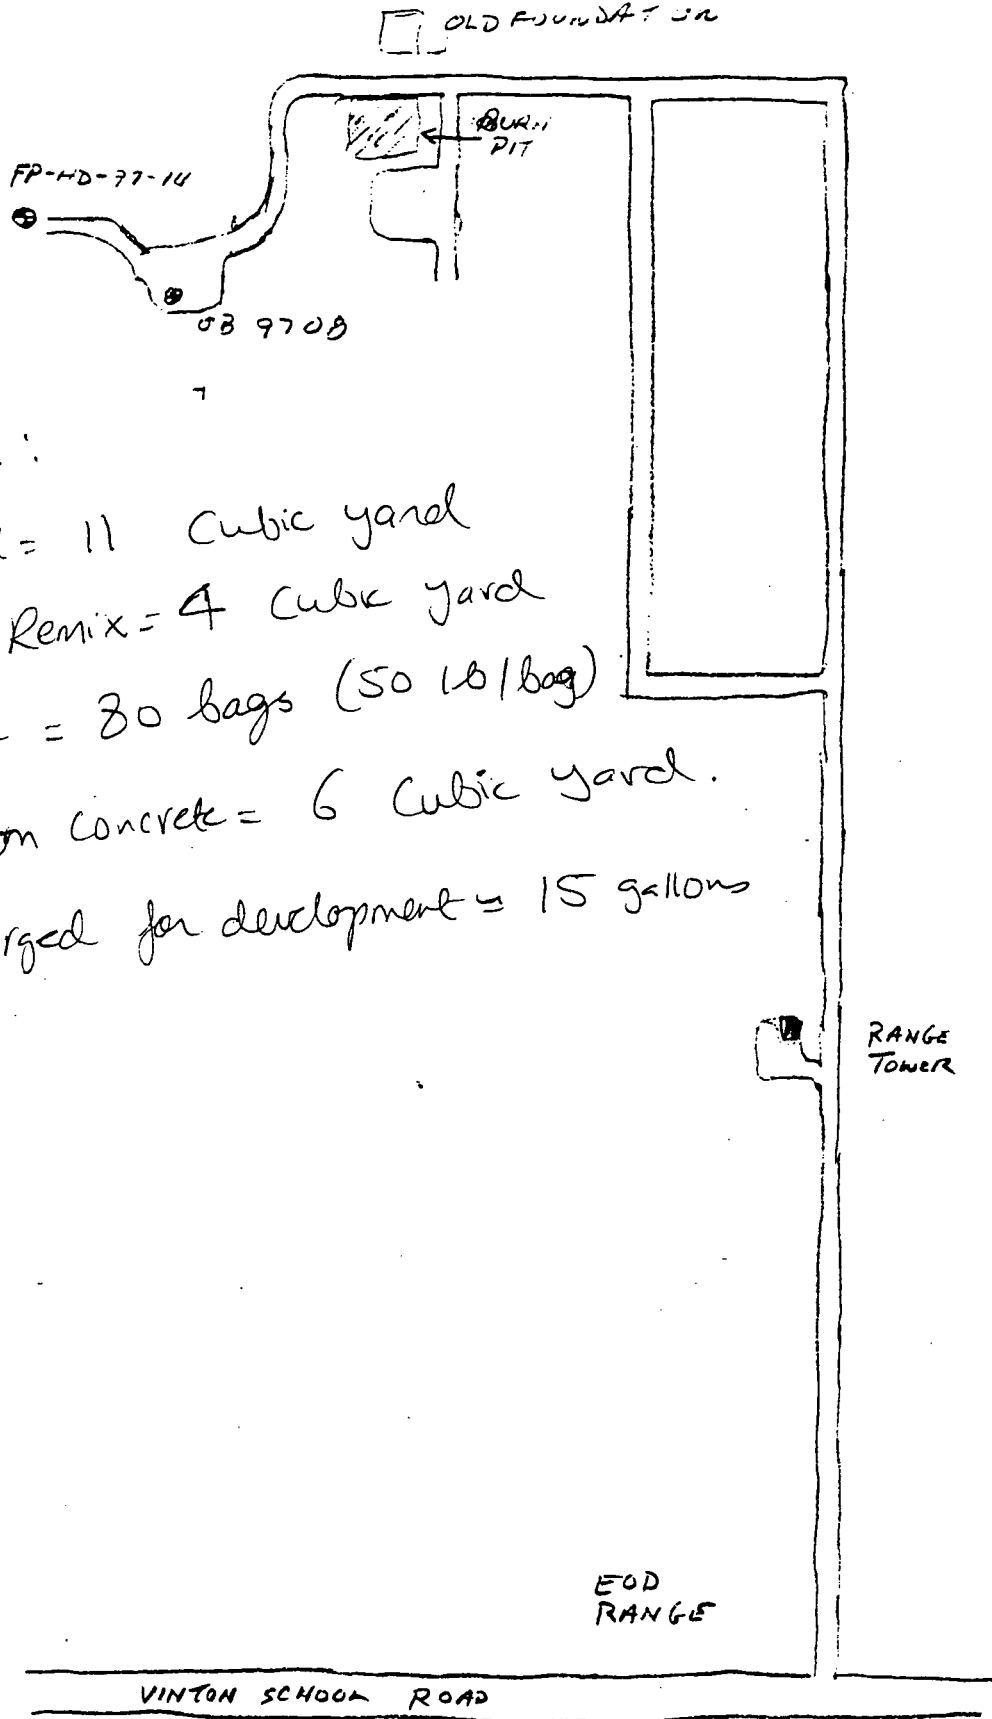 OLD FOUNDATION
BURN
PIT
FP-HD-97-14
9708
= 11 Cubic yard
Remix = 4 Cubic yard
= 80 bags (50 lb/bag)
Concrete = 6 Cubic yard.
for development = 15 gallons
RANGE
TOWER
EOD
RANGE
VINTON SCHOOL ROAD